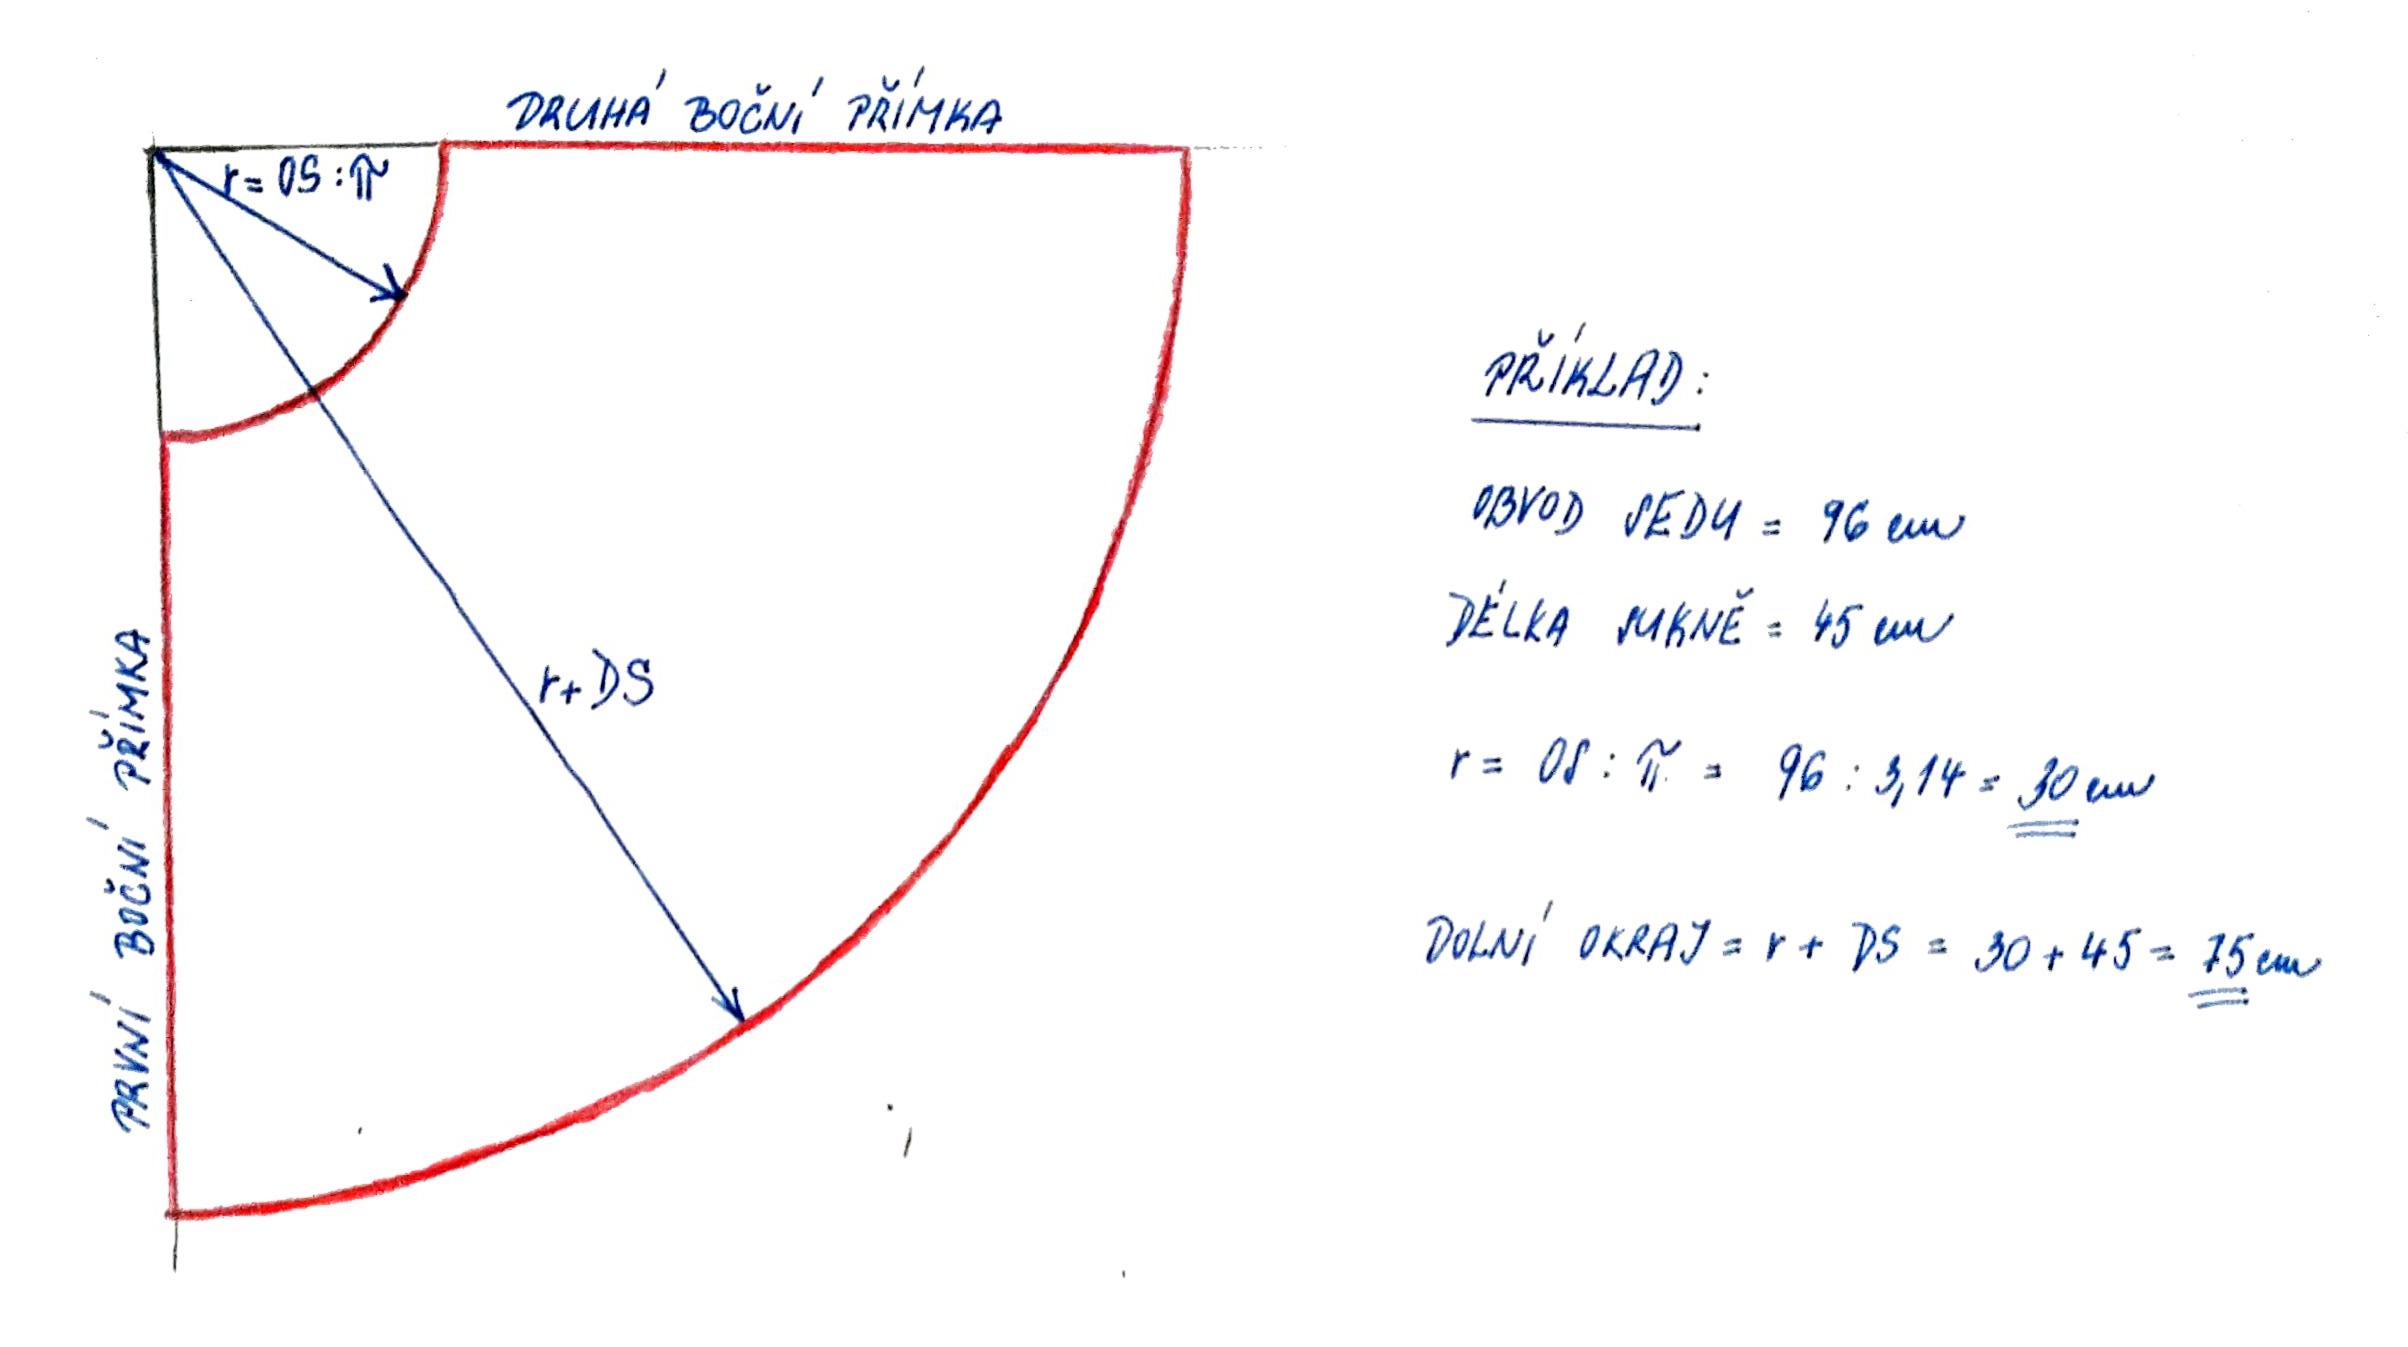 DRUHÁ BOČNÍ PŘÍMKA
r = OS : π
r + DS
PRVNÍ BOČNÍ PŘÍMKA
PŘÍKLAD:
OBVOD SEDU = 96 cm
DÉLKA SUKNĚ = 45 cm
r = OS : π = 96 : 3,14 = 30 cm
DOLNÍ OKRAJ = r + DS = 30 + 45 = 75 cm